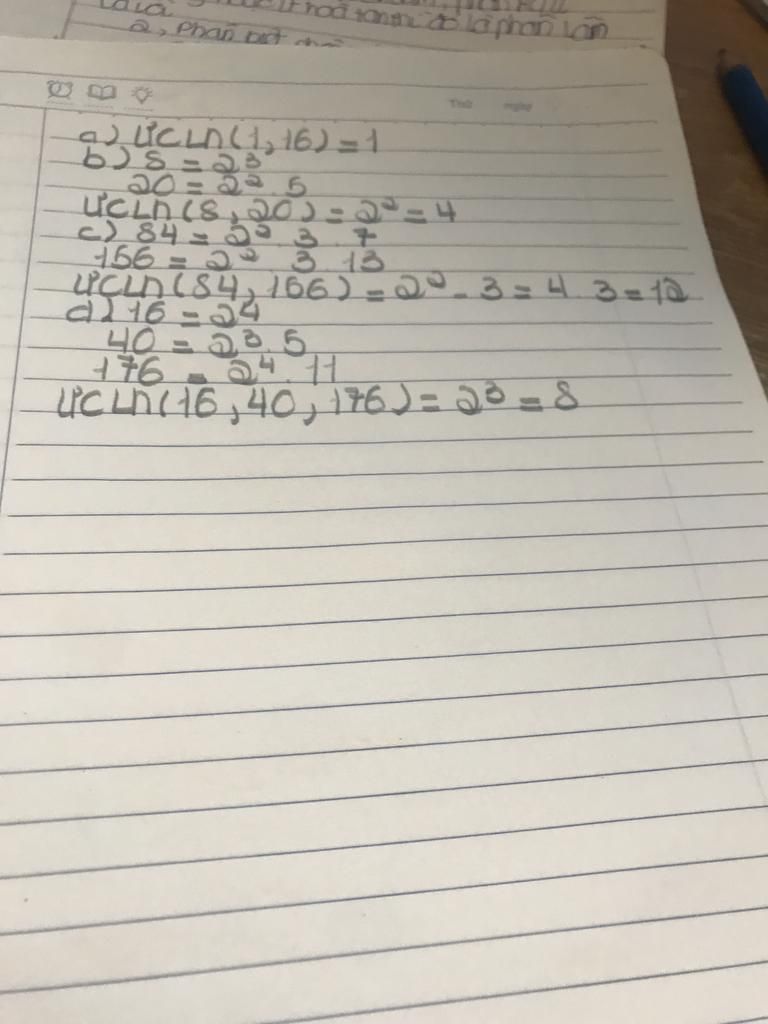 2, phần
Thứ ngày
a) ƯCLN(1,16) = 1
b) 8 = 2³
20 = 2². 5
ƯCLN(8, 20) = 2² = 4
c) 84 = 2². 3. 7
156 = 2² 3. 13
ƯCLN(84, 156) = 2² - 3 = 4. 3 = 12
d) 16 = 2⁴
40 = 2³. 5
176 = 2⁴. 11
ƯCLN(16, 40, 176) = 2³ = 8